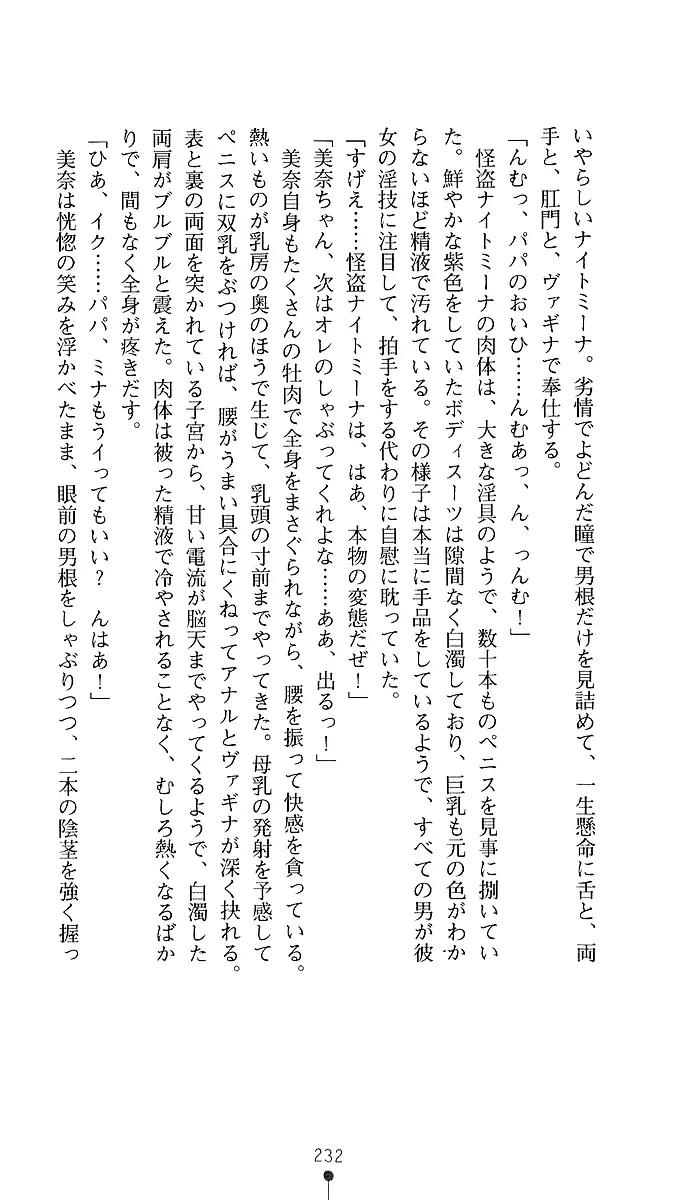 いやらしいナイトミーナ。劣情でよどんだ瞳で男根だけを見詰めて、一生懸命に舌と、両
手と、肛門と、ヴァギナで奉仕する。
「んむっ、パパのおいひ……んむあっ、ん、っんむ！」
怪盗ナイトミーナの肉体は、大きな淫具のようで、数十本ものペニスを見事に捌いてい
た。鮮やかな紫色をしていたボディスーツは隙間なく白濁しており、巨乳も元の色がわか
らないほど精液で汚れている。その様子は本当に手品をしているようで、すべての男が彼
女の淫技に注目して、拍手をする代わりに自慰に耽っていた。
「すげえ……怪盗ナイトミーナは、はあ、本物の変態だぜ！」
「美奈ちゃん、次はオレのしゃぶってくれよな……ああ、出るっ！」
美奈自身もたくさんの牡肉で全身をまさぐられながら、腰を振って快感を貪っている。
熱いものが乳房の奥のほうで生じて、乳頭の寸前までやってきた。母乳の発射を予感して
ペニスに双乳をぶつければ、腰がうまい具合にくねってアナルとヴァギナが深く抉れる。
表と裏の両面を突かれている子宮から、甘い電流が脳天までやってくるようで、白濁した
両肩がブルブルと震えた。肉体は被った精液で冷やされることなく、むしろ熱くなるばか
りで、間もなく全身が疼きだす。
「ひあ、イク……パパ、ミナもうイってもいい？　んはあ！」
美奈は恍惚の笑みを浮かべたまま、眼前の男根をしゃぶりつつ、二本の陰茎を強く握っ
232